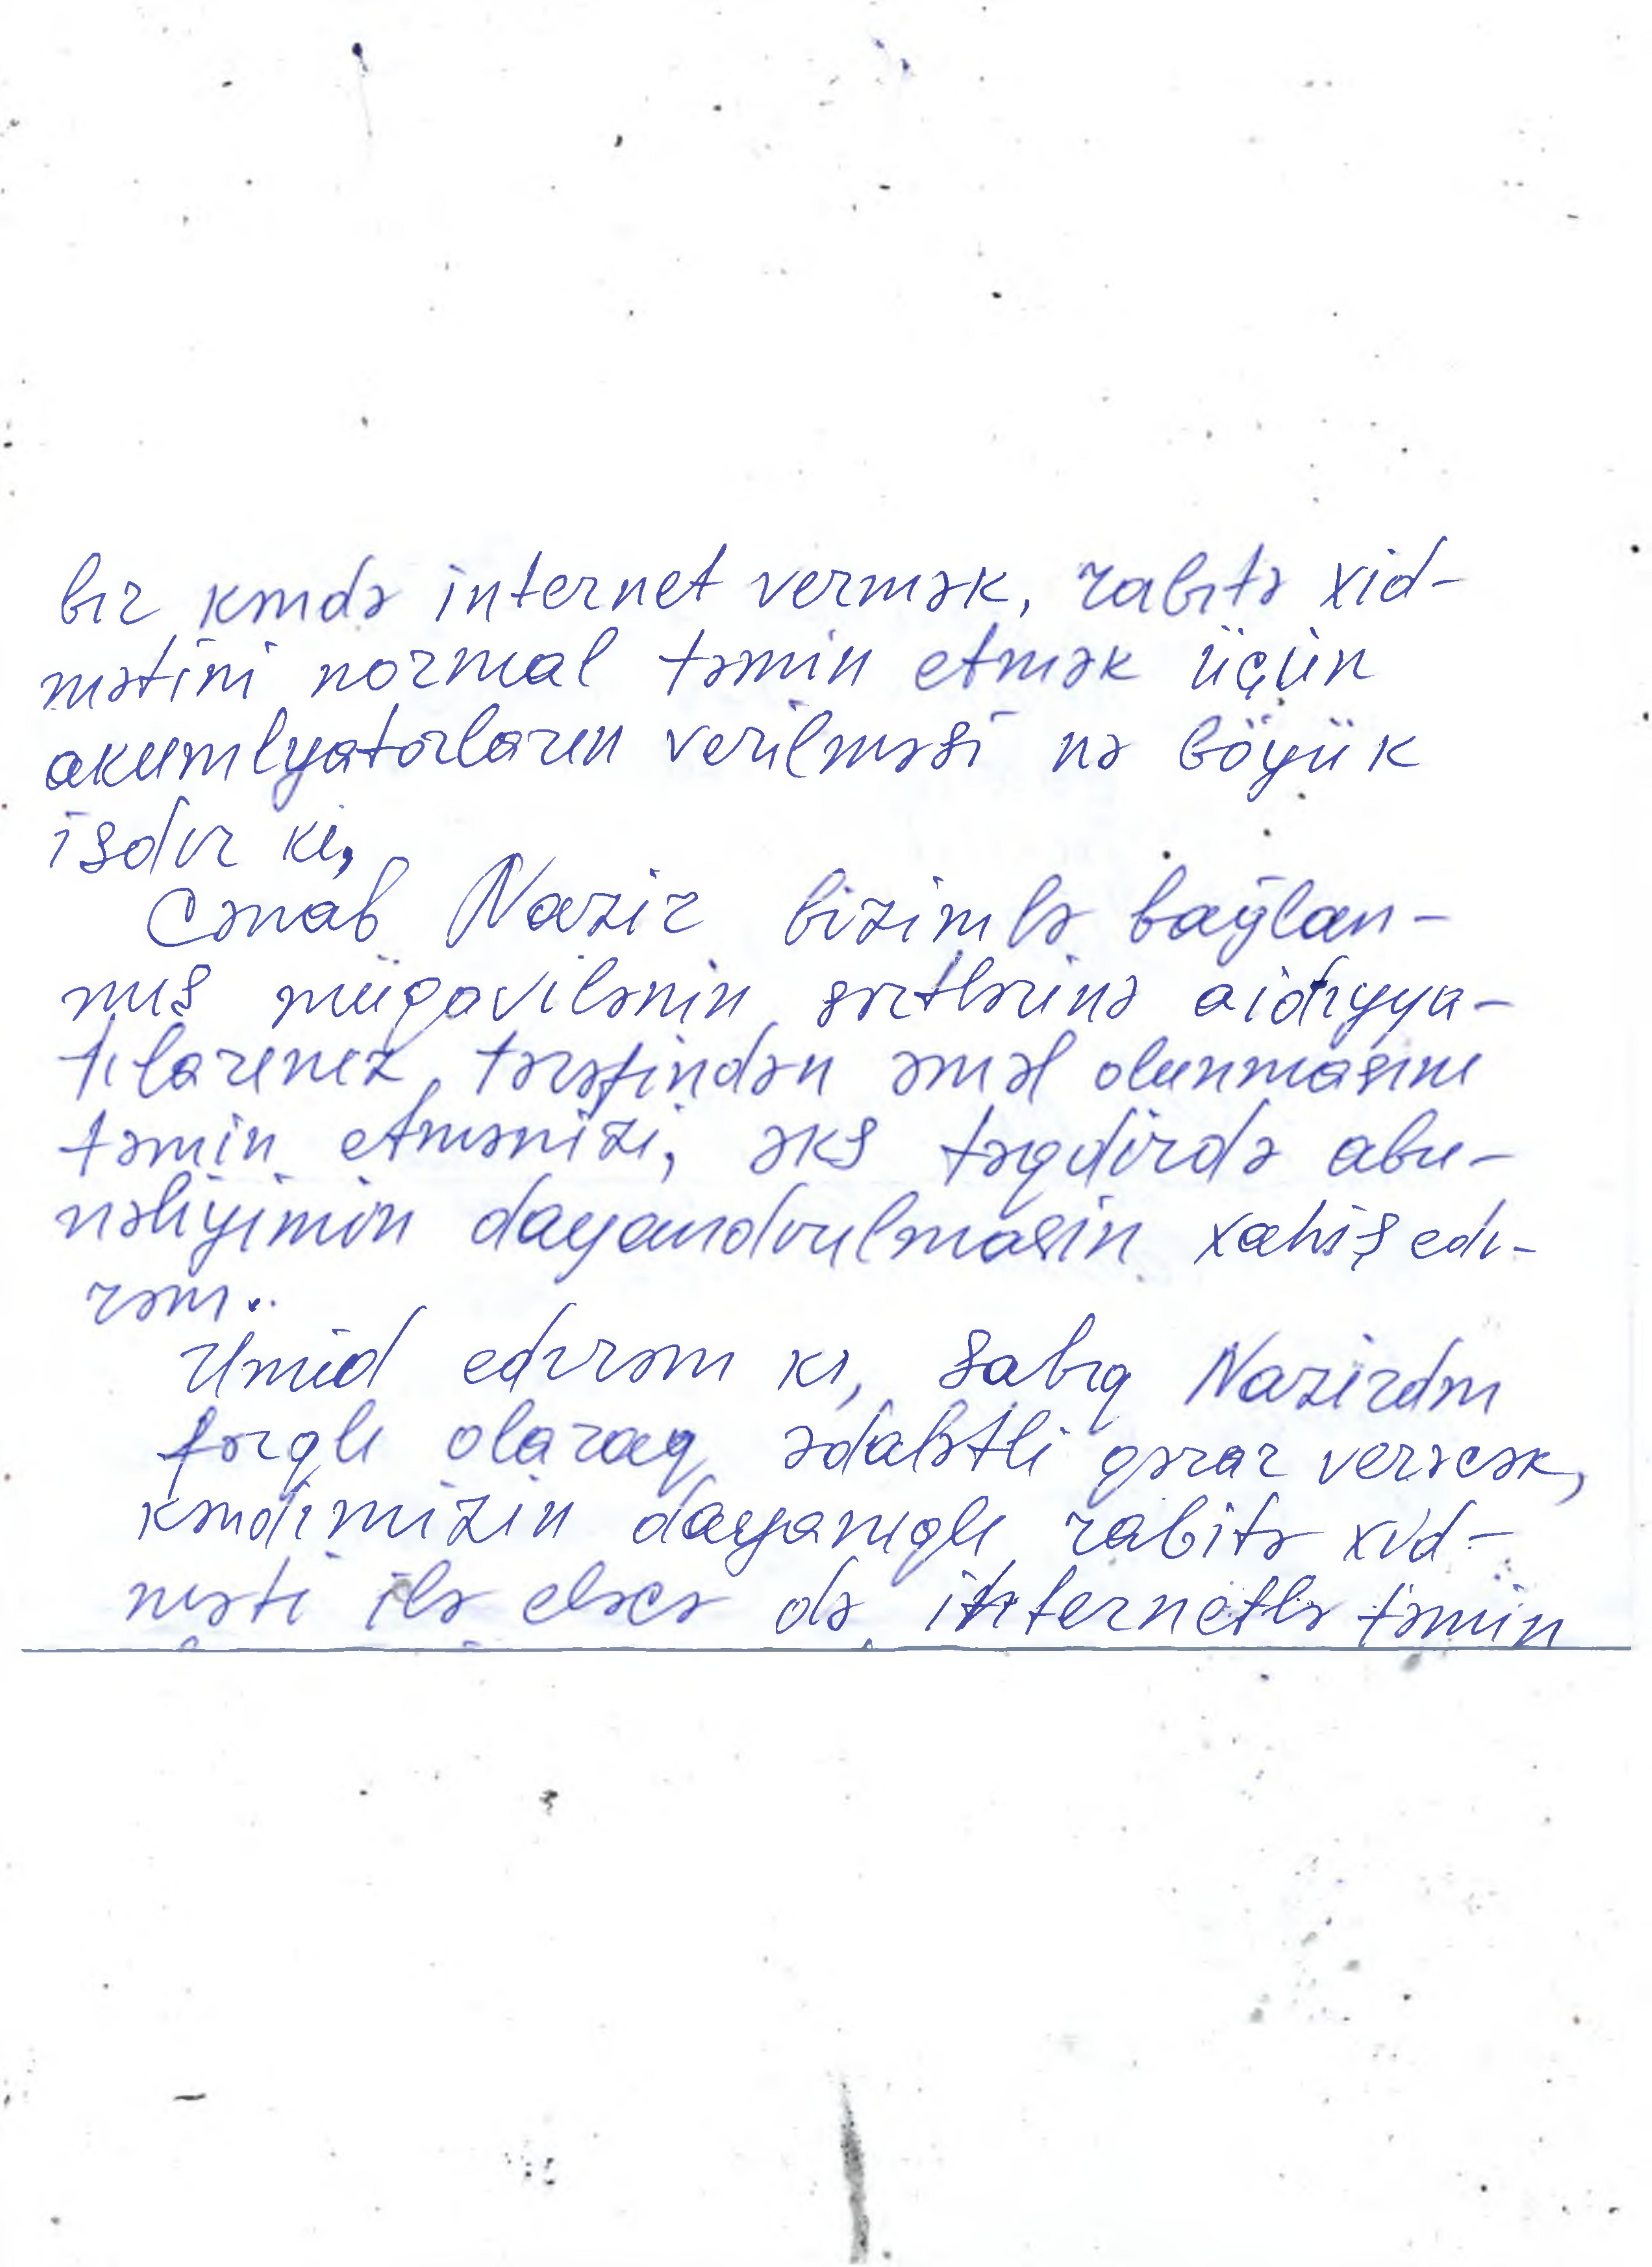 bir kəndə internet vermək, rabitə xid-
mətini normal təmin etmək üçün
akumlyatorların verilməsi nə böyük
işdir ki,
Cənab Nazir bizimlə bağlan-
mış müqavilənin şərtlərinə aidiyya-
tılarınız tərəfindən əməl olunmasını
təmin etmənizi, əks təqdirdə abu-
nəliyimin dayandırılmasın xahiş edi-
rəm..
Ümid edirəm ki, sabiq Nazirdən
fərqli olaraq ədalətli qərar verəcək,
kəndimizin dayanıqlı rabitə xid-
məti ilə eləcə də internetlə təmin